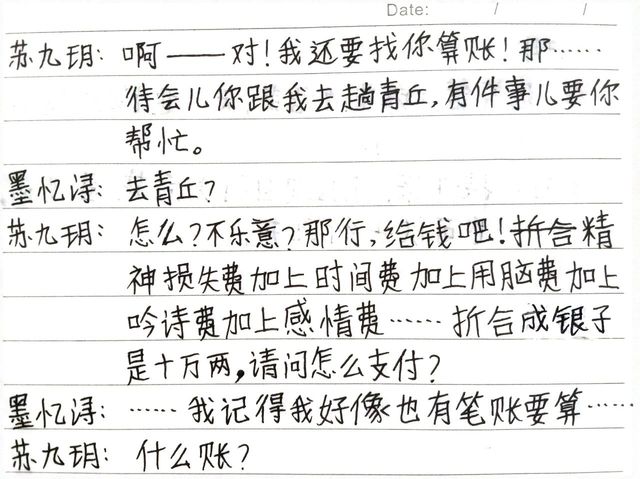 Date: / /
苏九玥：啊——对！我还要找你算账！那……
待会儿你跟我去趟青丘，有件事儿要你
帮忙。
墨忆浔：去青丘？
苏九玥：怎么？不乐意？那行，给钱吧！折合精
神损失费加上时间费加上用脑费加上
吟诗费加上感情费……折合成银子
是十万两，请问怎么支付？
墨忆浔：……我记得我好像也有笔账要算……
苏九玥：什么账？